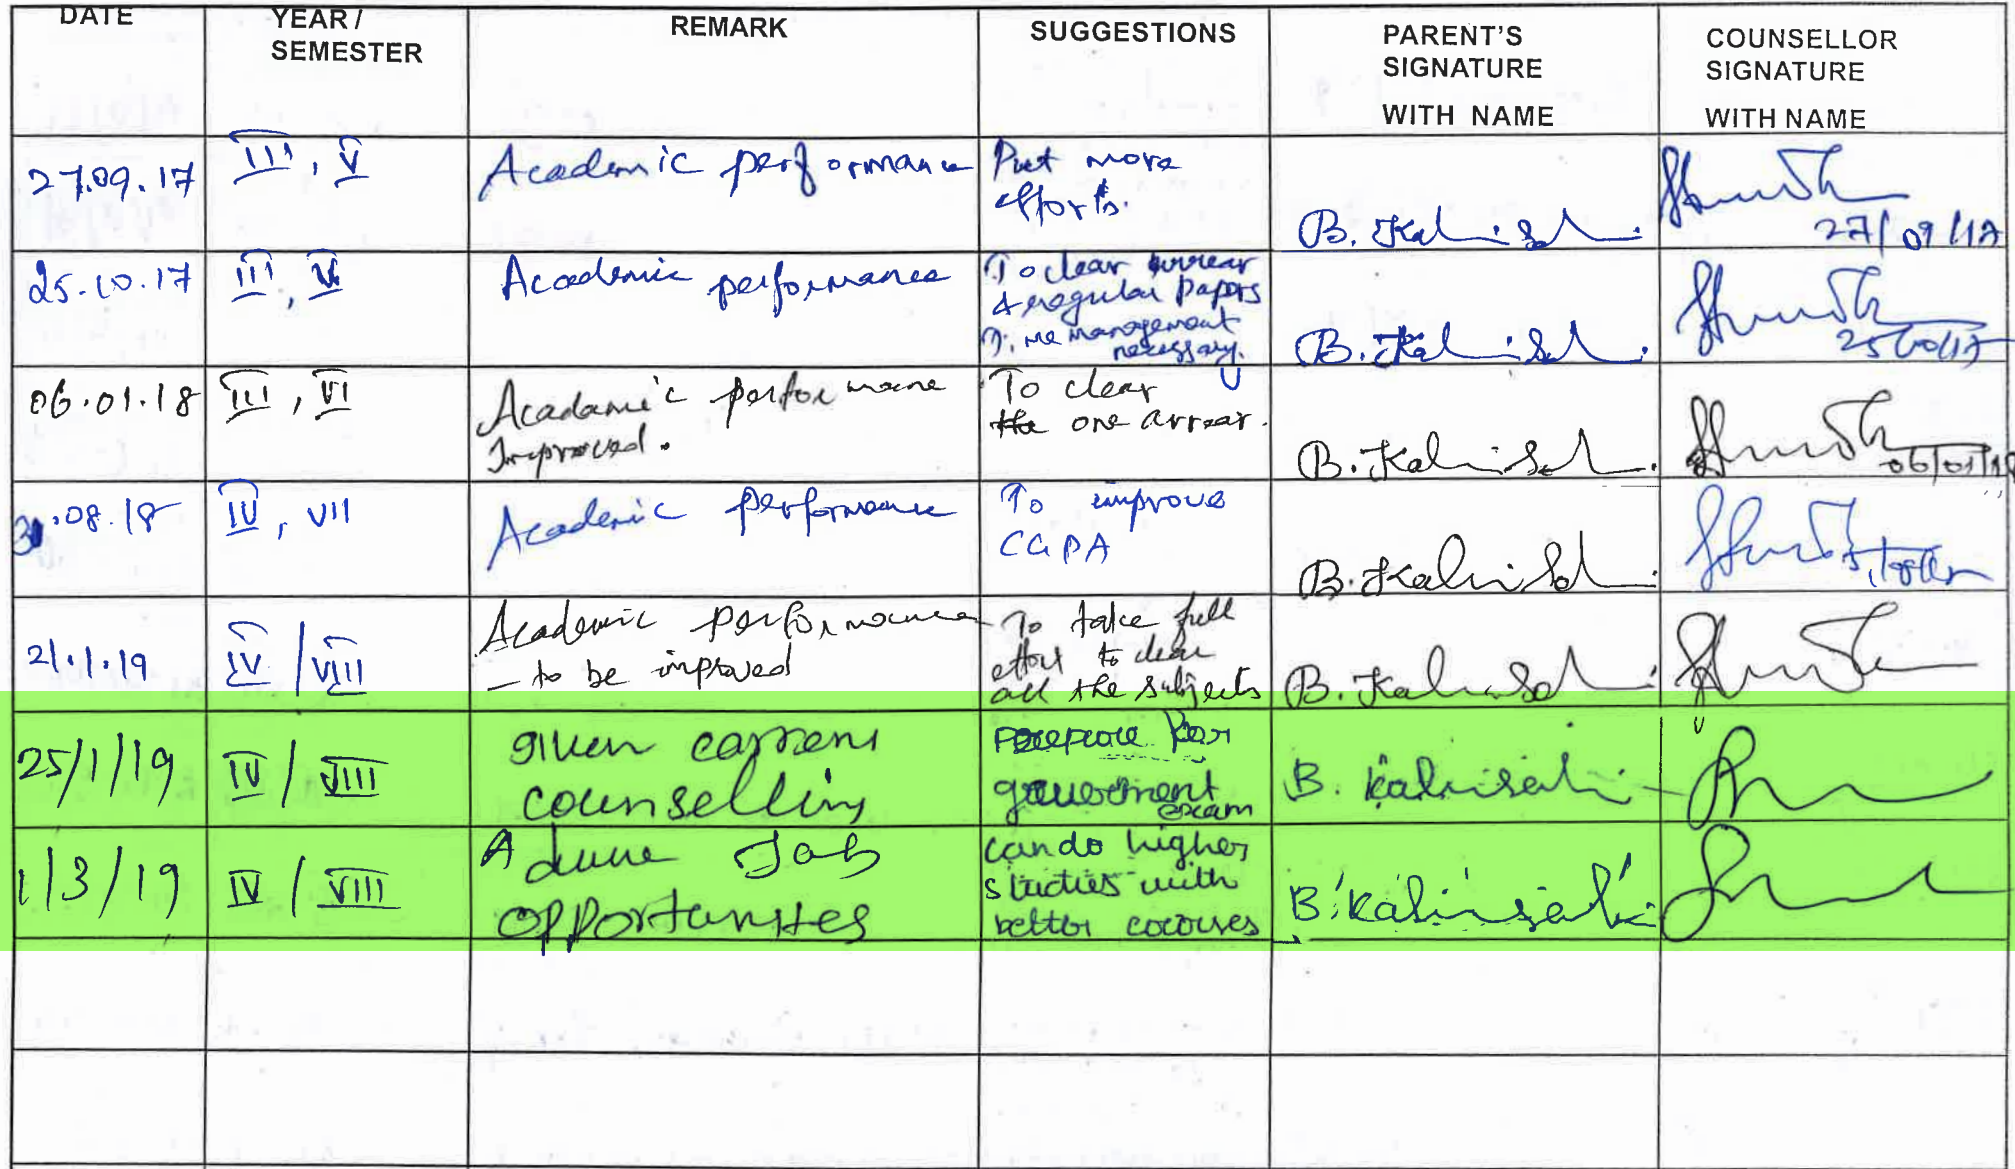 DATE
YEAR/
SEMESTER
REMARK
SUGGESTIONS
PARENT'S
SIGNATURE
WITH NAME
COUNSELLOR
SIGNATURE
WITH NAME
27.09.17
III, V
Academic performance
Put more
efforts.
B. Kalaiselvi
27/09/17
25.10.17
III, V
Academic performance
To clear arrear
& regular papers
Time management
necessary.
B. Kalaiselvi
25/10/17
06.01.18
III, VI
Acadamic performance
Improved.
To clear
the one arrear.
B. Kalaiselvi
06/01/18
31.08.18
IV, VII
Academic performance
To improve
CGPA
B. Kalaiselvi
21.1.19
IV/VIII
Academic performance
- to be improved
To take full
effort to clear
all the subjects
B. Kalaiselvi
25/1/19
IV/VIII
given carrens
counselling
Prepare for
government
exam
B. Kalaiselvi
1/3/19
IV/VIII
Job
opportunites
can do higher
studies with
better cocourses
B. Kalaiselvi